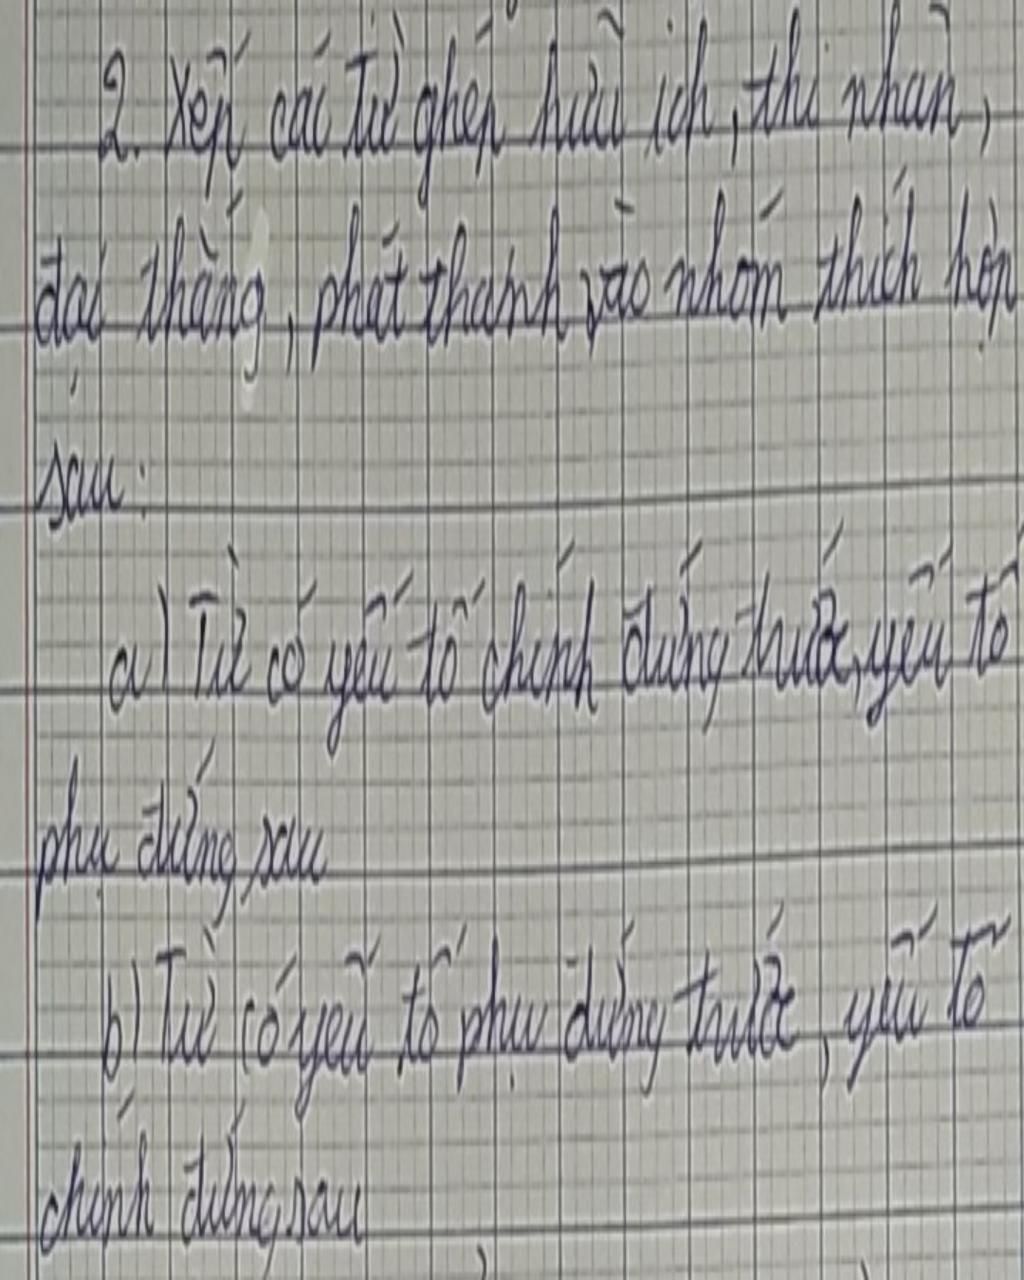 2. Xếp các từ ghép hữu ích, thi nhân,
đại thắng, phát thanh vào nhóm thích hợp
sau:
a) Từ có yếu tố chính đứng trước, yếu tố
phụ đứng sau
b) Từ có yếu tố phụ đứng trước, yếu tố
chính đứng sau